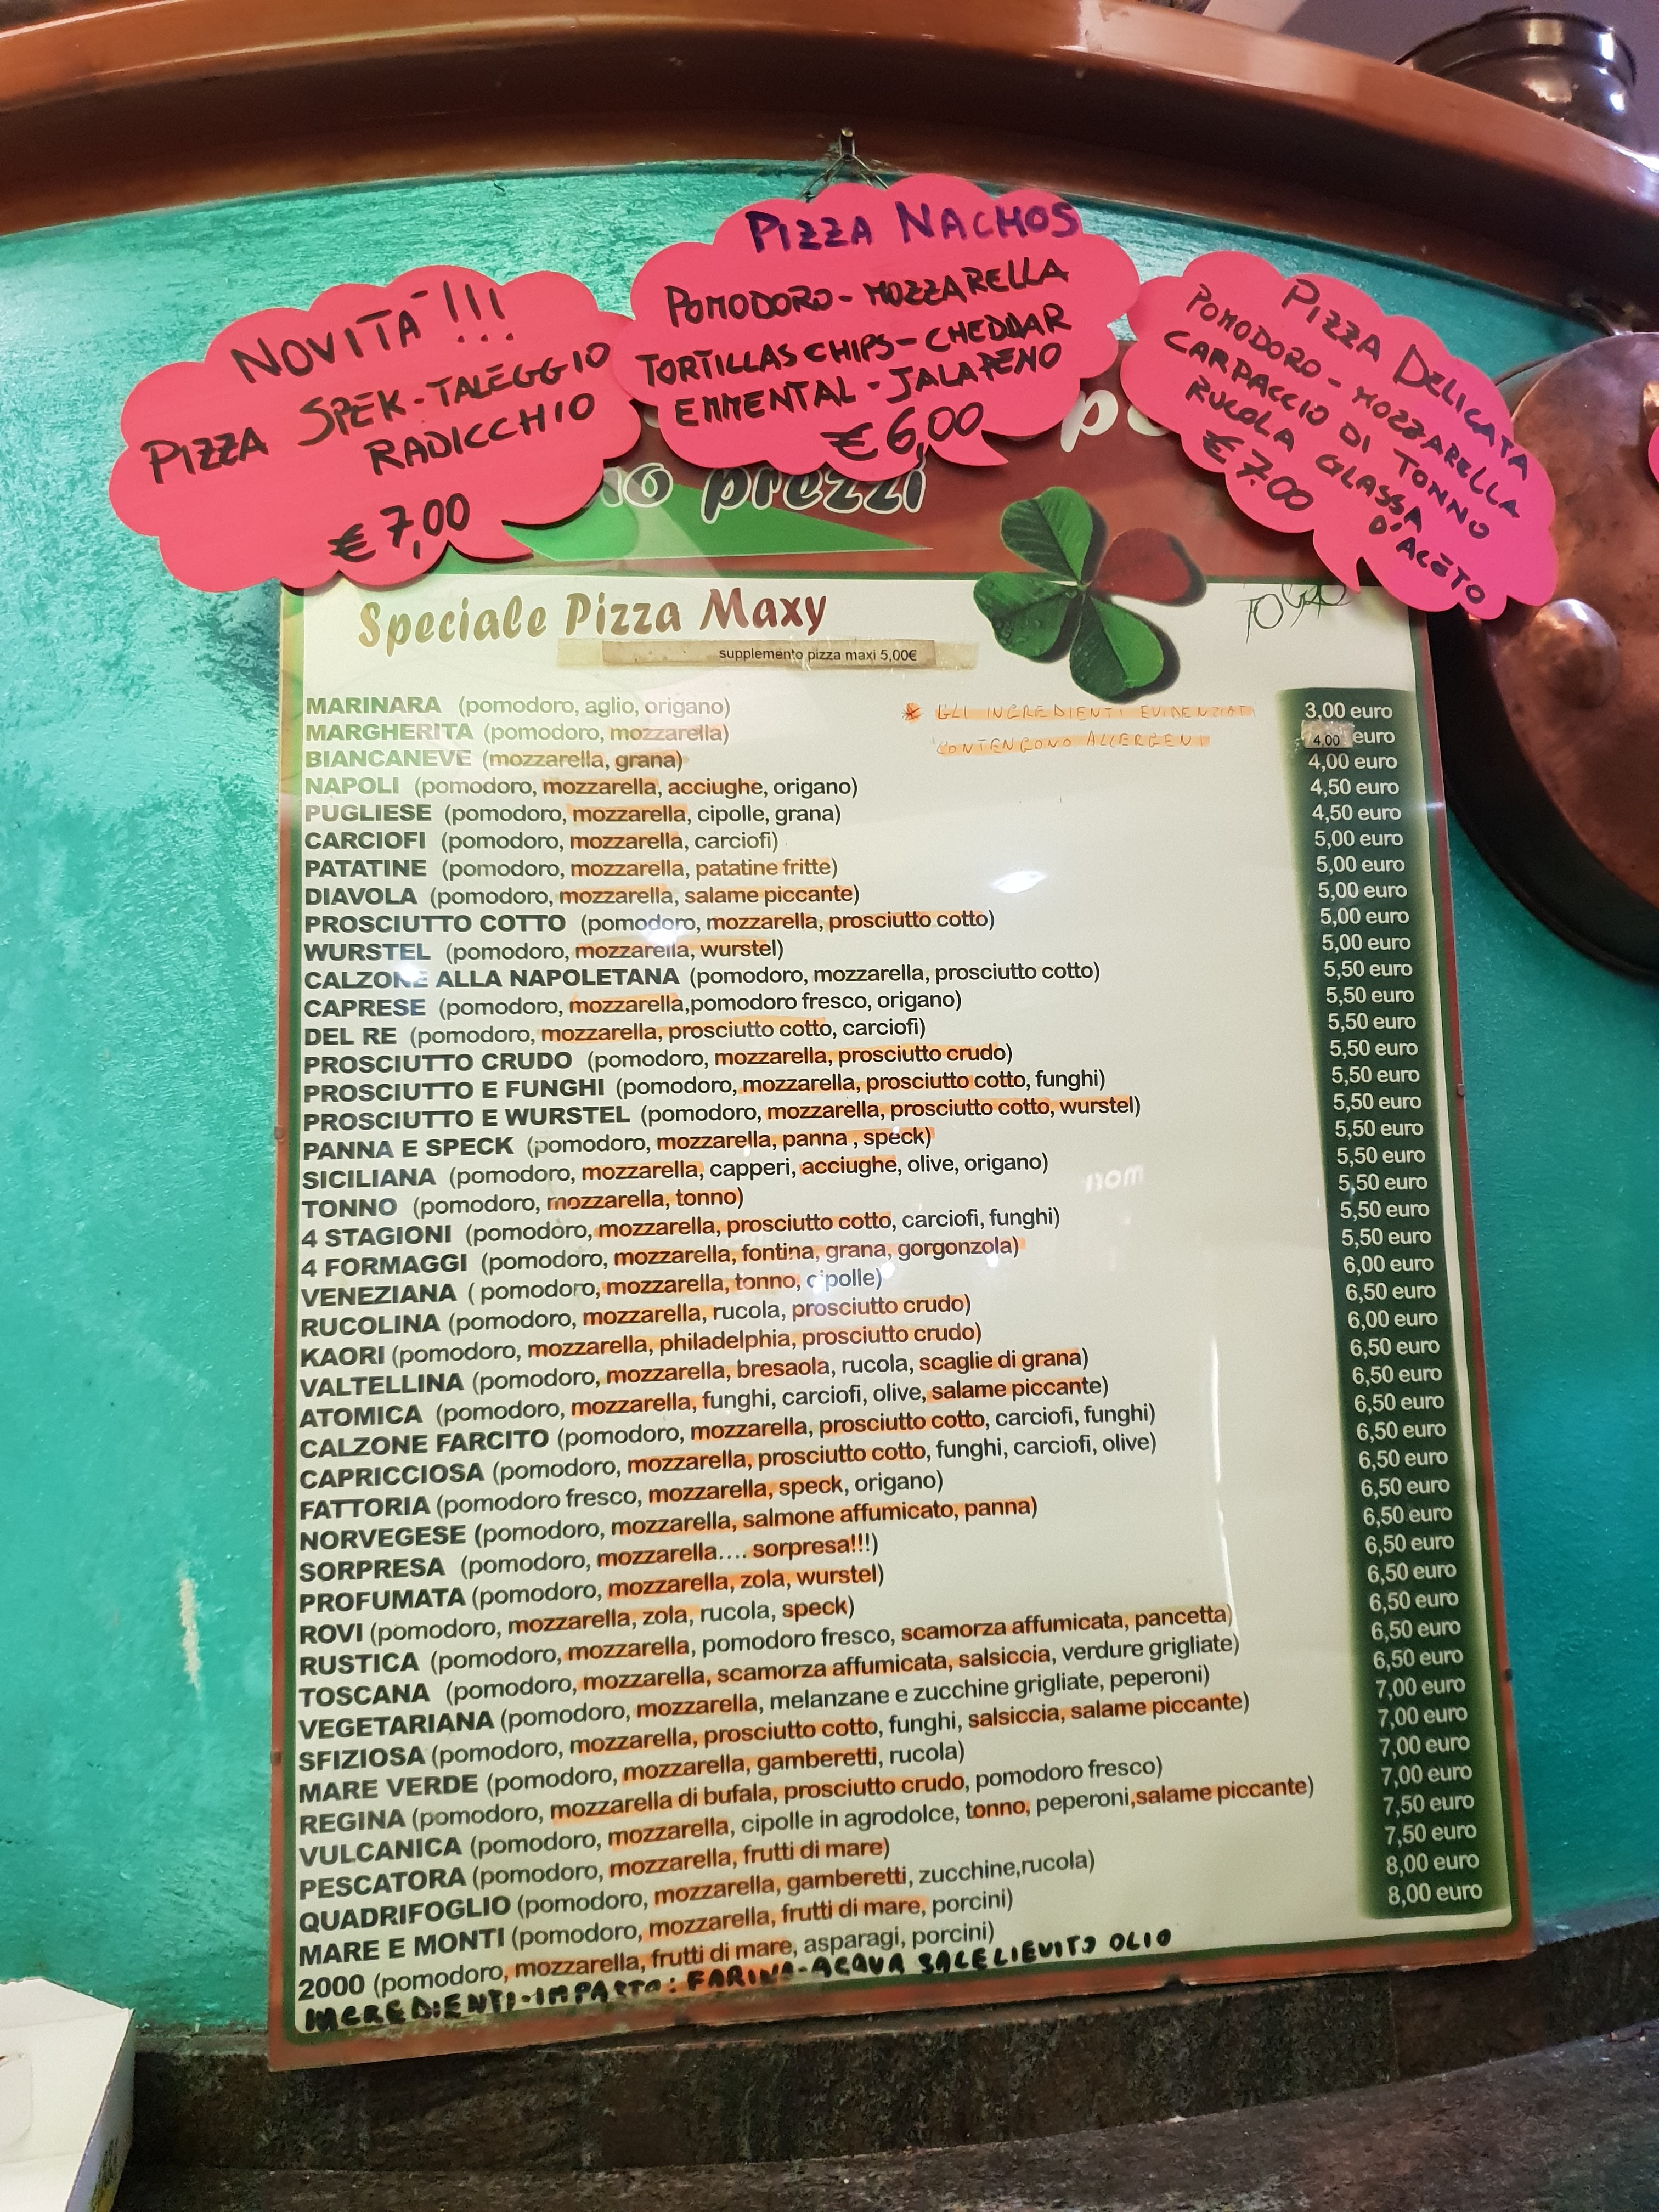 NOVITÀ!!!
PIZZA SPEK-TALEGGIO
RADICCHIO
€ 7,00
PIZZA NACHOS
POMODORO - MOZZARELLA
TORTILLAS CHIPS - CHEDDAR
EMMENTAL - JALAPENO
€ 6,00
PIZZA DELICATA
POMODORO - MOZZARELLA
CARPACCIO DI TONNO
RUCOLA GLASSA
D'ACETO
€ 7.00
prezzi
Speciale Pizza Maxy
supplemento pizza maxi 5,00€
* GLI INGREDIENTI EVIDENZIATI
CONTENGONO ALLERGENI
MARINARA (pomodoro, aglio, origano) 3,00 euro
MARGHERITA (pomodoro, mozzarella) 4,00 euro
BIANCANEVE (mozzarella, grana) 4,00 euro
NAPOLI (pomodoro, mozzarella, acciughe, origano) 4,50 euro
PUGLIESE (pomodoro, mozzarella, cipolle, grana) 4,50 euro
CARCIOFI (pomodoro, mozzarella, carciofi) 5,00 euro
PATATINE (pomodoro, mozzarella, patatine fritte) 5,00 euro
DIAVOLA (pomodoro, mozzarella, salame piccante) 5,00 euro
PROSCIUTTO COTTO (pomodoro, mozzarella, prosciutto cotto) 5,00 euro
WURSTEL (pomodoro, mozzarella, wurstel) 5,00 euro
CALZONE ALLA NAPOLETANA (pomodoro, mozzarella, prosciutto cotto) 5,50 euro
CAPRESE (pomodoro, mozzarella,pomodoro fresco, origano) 5,50 euro
DEL RE (pomodoro, mozzarella, prosciutto cotto, carciofi) 5,50 euro
PROSCIUTTO CRUDO (pomodoro, mozzarella, prosciutto crudo) 5,50 euro
PROSCIUTTO E FUNGHI (pomodoro, mozzarella, prosciutto cotto, funghi) 5,50 euro
PROSCIUTTO E WURSTEL (pomodoro, mozzarella, prosciutto cotto, wurstel) 5,50 euro
PANNA E SPECK (pomodoro, mozzarella, panna , speck) 5,50 euro
SICILIANA (pomodoro, mozzarella, capperi, acciughe, olive, origano) 5,50 euro
TONNO (pomodoro, mozzarella, tonno) 5,50 euro
4 STAGIONI (pomodoro, mozzarella, prosciutto cotto, carciofi, funghi) 5,50 euro
4 FORMAGGI (pomodoro, mozzarella, fontina, grana, gorgonzola) 5,50 euro
VENEZIANA ( pomodoro, mozzarella, tonno, cipolle) 6,00 euro
RUCOLINA (pomodoro, mozzarella, rucola, prosciutto crudo) 6,50 euro
KAORI (pomodoro, mozzarella, philadelphia, prosciutto crudo) 6,00 euro
VALTELLINA (pomodoro, mozzarella, bresaola, rucola, scaglie di grana) 6,50 euro
ATOMICA (pomodoro, mozzarella, funghi, carciofi, olive, salame piccante) 6,50 euro
CALZONE FARCITO (pomodoro, mozzarella, prosciutto cotto, carciofi, funghi) 6,50 euro
CAPRICCIOSA (pomodoro, mozzarella, prosciutto cotto, funghi, carciofi, olive) 6,50 euro
FATTORIA (pomodoro fresco, mozzarella, speck, origano) 6,50 euro
NORVEGESE (pomodoro, mozzarella, salmone affumicato, panna) 6,50 euro
SORPRESA (pomodoro, mozzarella.... sorpresa!!!) 6,50 euro
PROFUMATA (pomodoro, mozzarella, zola, wurstel) 6,50 euro
ROVI (pomodoro, mozzarella, zola, rucola, speck) 6,50 euro
RUSTICA (pomodoro, mozzarella, pomodoro fresco, scamorza affumicata, pancetta) 6,50 euro
TOSCANA (pomodoro, mozzarella, scamorza affumicata, salsiccia, verdure grigliate) 6,50 euro
VEGETARIANA (pomodoro, mozzarella, melanzane e zucchine grigliate, peperoni) 6,50 euro
SFIZIOSA (pomodoro, mozzarella, prosciutto cotto, funghi, salsiccia, salame piccante) 7,00 euro
MARE VERDE (pomodoro, mozzarella, gamberetti, rucola) 7,00 euro
REGINA (pomodoro, mozzarella di bufala, prosciutto crudo, pomodoro fresco) 7,00 euro
VULCANICA (pomodoro, mozzarella, cipolle in agrodolce, tonno, peperoni,salame piccante) 7,00 euro
PESCATORA (pomodoro, mozzarella, frutti di mare) 7,50 euro
QUADRIFOGLIO (pomodoro, mozzarella, gamberetti, zucchine,rucola) 7,50 euro
MARE E MONTI (pomodoro, mozzarella, frutti di mare, porcini) 8,00 euro
2000 (pomodoro, mozzarella, frutti di mare, asparagi, porcini) 8,00 euro
INGREDIENTI-IMPASTO: FARINA-ACQUA SALE LIEVITO OLIO